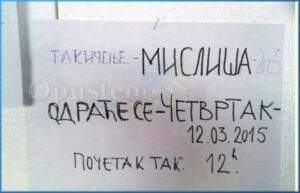 ТАКИЧЕЊЕ - МИСЛИША - 2015
ОДРАЂЕ СЕ - ЧЕТВРТАК -
12.03.2015
ПОЧЕТАК ТАК. 12ʰ.